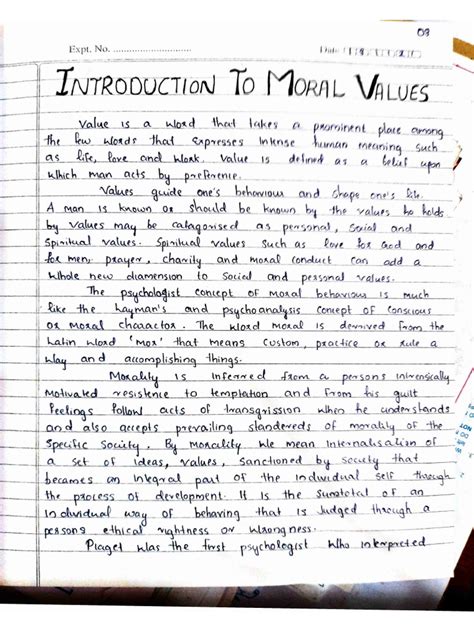 03
Expt. No. ..............................
Date
INTRODUCTION TO MORAL VALUES
Value is a word that takes a prominent place among
the few words that expresses intense human meaning such
as life, love and work. Value is defined as a belief upon
which man acts by preference.
Values guide one's behaviour and shape one's life.
A man is known or should be known by the values he holds
by values may be catagorised as personal, social and
Spiritual values. Spiritual values such as love for God and
for men, prayer, charity and moral conduct can add a
whole new diamension to social and personal values.
The psychologist concept of moral behaviour is much
like the layman's and psychoanalysis concept of conscious
or moral character. The word moral is derived from the
Latin word 'mor' that means custom, practice or rule a
way and accomplishing things.
Morality is inferred from a persons intrensically
motivated resistence to temptation and from his guilt
feelings follow acts of transgrission when he understands
and also accepts prevailing standereds of morality of the
specific society. By morality we mean internalisation of
a set of ideas, values, sanctioned by society that
becames an integral part of the individual self through
the process of development. It is the sumtotal of an
individual way of behaving that is judged through a
persons ethical rightness or wrongness.
Piaget was the first psychologist who interpreted